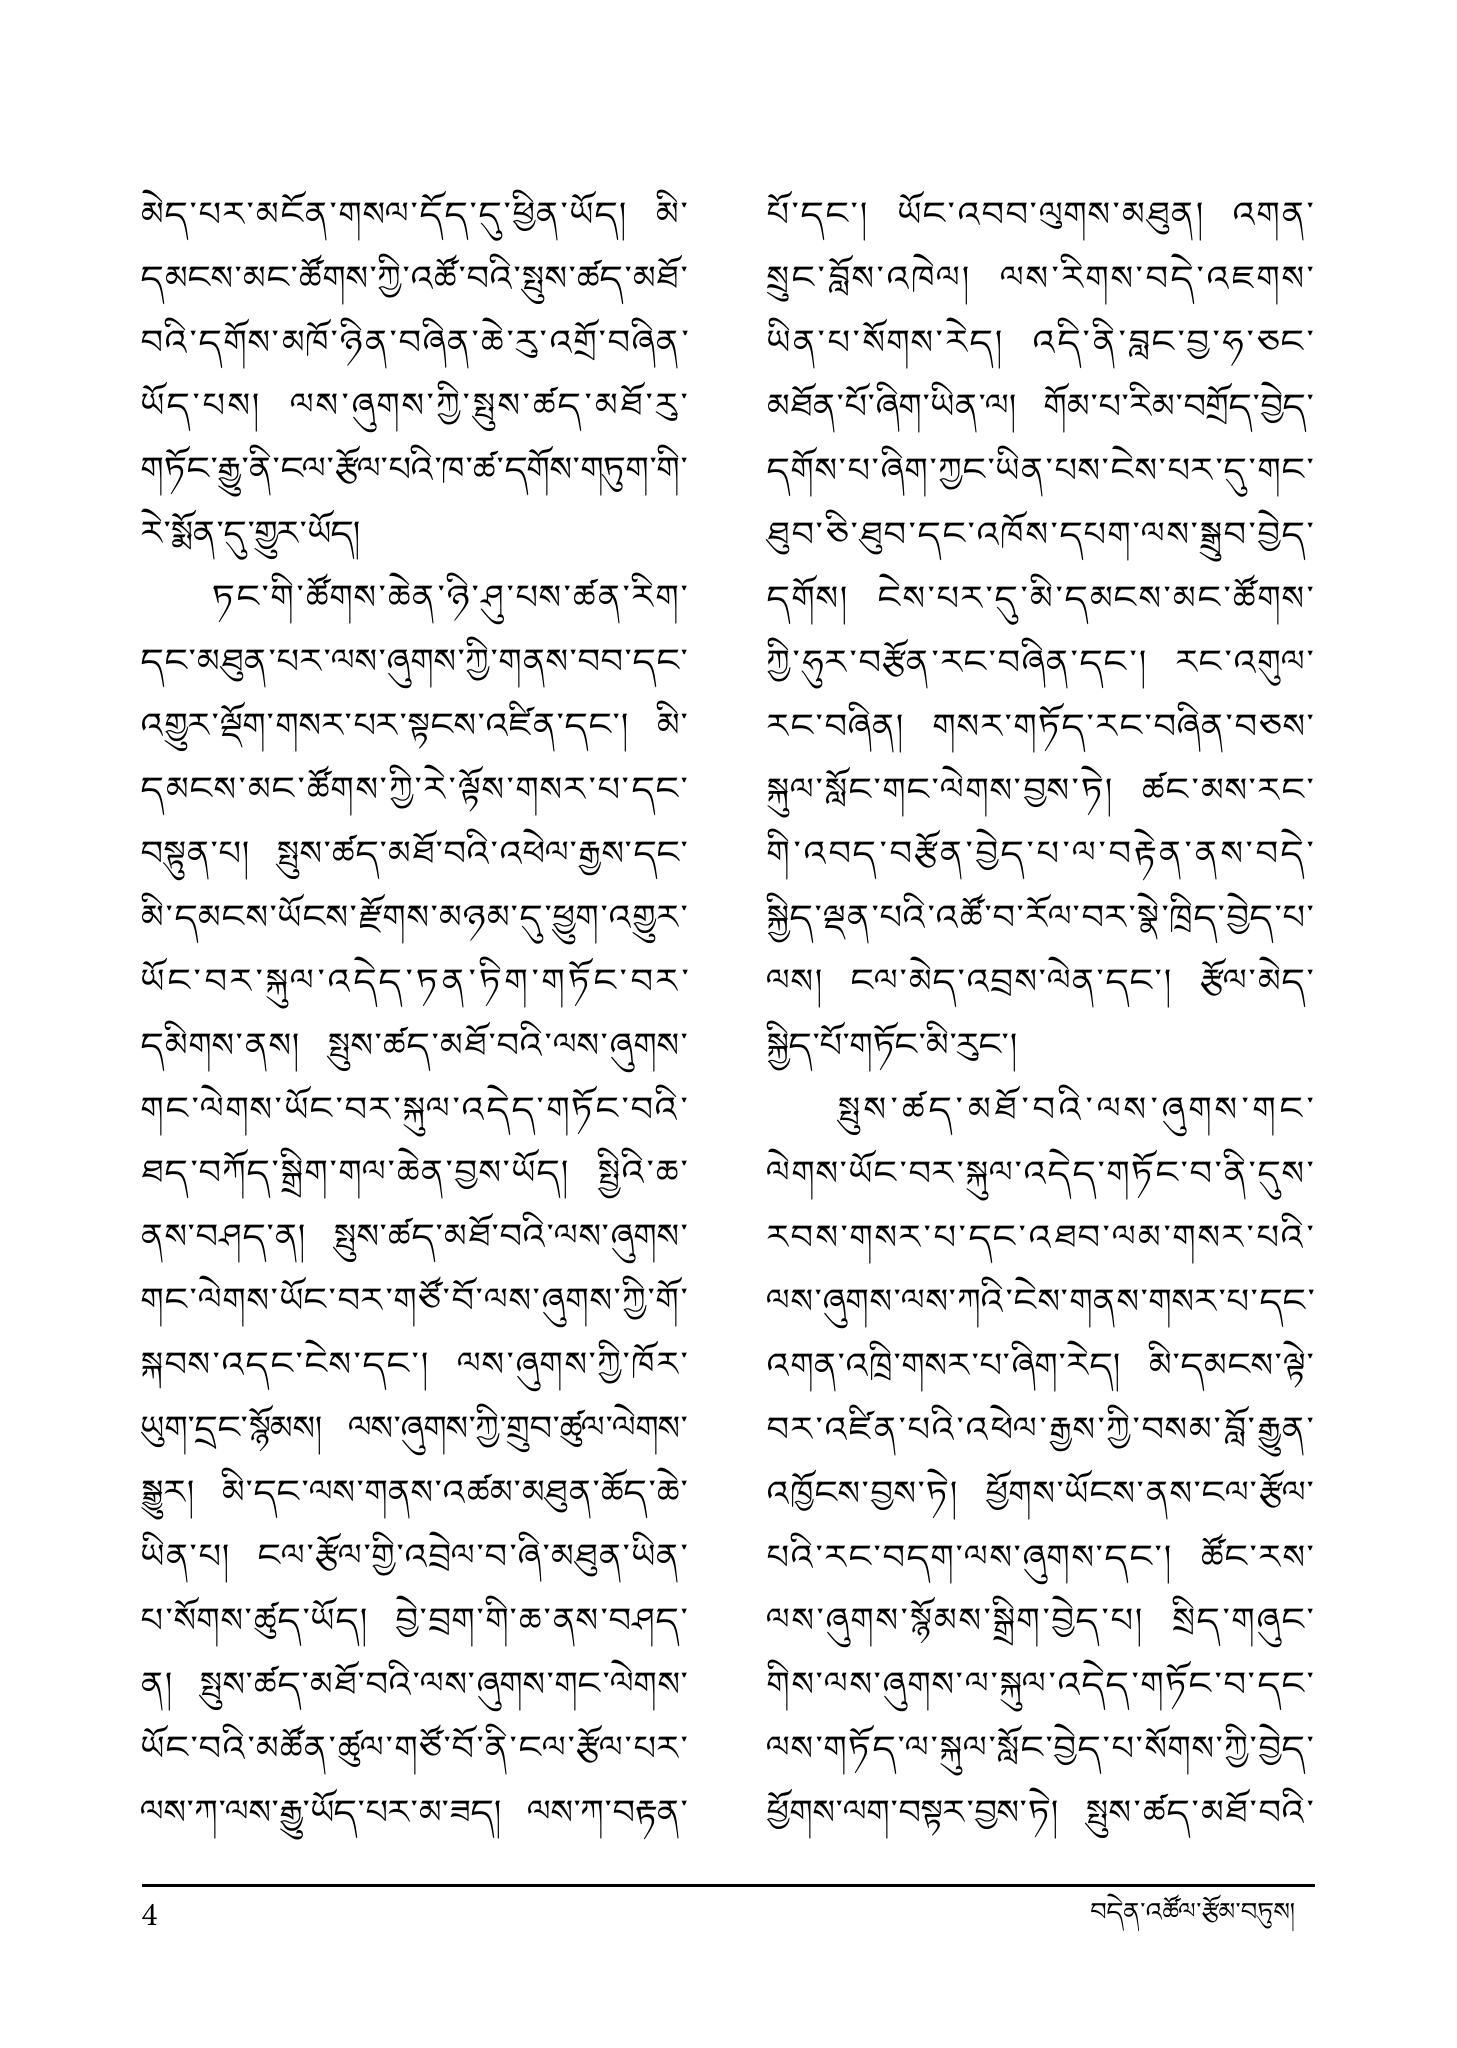 མེད་པར་མངོན་གསལ་དོད་དུ་ཕྱིན་ཡོད། མི་
དམངས་མང་ཚོགས་ཀྱི་འཚོ་བའི་སྤུས་ཚད་མཐོ་
བའི་དགོས་མཁོ་ཉིན་བཞིན་ཆེ་རུ་འགྲོ་བཞིན་
ཡོད་པས། ལས་ཞུགས་ཀྱི་སྤུས་ཚད་མཐོ་རུ་
གཏོང་རྒྱུ་ནི་ངལ་རྩོལ་པའི་ཁ་ཚ་དགོས་གཏུག་གི་
རེ་སྨོན་དུ་གྱུར་ཡོད།
ཏང་གི་ཚོགས་ཆེན་ཉི་ཤུ་པས་ཚན་རིག་
དང་མཐུན་པར་ལས་ཞུགས་ཀྱི་གནས་བབ་དང་
འགྱུར་ལྡོག་གསར་པར་སྟངས་འཛིན་དང་། མི་
དམངས་མང་ཚོགས་ཀྱི་རེ་ལྟོས་གསར་པ་དང་
བསྟུན་པ། སྤུས་ཚད་མཐོ་བའི་འཕེལ་རྒྱས་དང་
མི་དམངས་ཡོངས་རྫོགས་མཉམ་དུ་ཕྱུག་འགྱུར་
ཡོང་བར་སྐུལ་འདེད་ཏན་ཏིག་གཏོང་བར་
དམིགས་ནས། སྤུས་ཚད་མཐོ་བའི་ལས་ཞུགས་
གང་ལེགས་ཡོང་བར་སྐུལ་འདེད་གཏོང་བའི་
ཐད་བཀོད་སྒྲིག་གལ་ཆེན་བྱས་ཡོད། སྤྱིའི་ཆ་
ནས་བཤད་ན། སྤུས་ཚད་མཐོ་བའི་ལས་ཞུགས་
གང་ལེགས་ཡོང་བར་གཙོ་བོ་ལས་ཞུགས་ཀྱི་གོ་
སྐབས་འདང་ངེས་དང་། ལས་ཞུགས་ཀྱི་ཁོར་
ཡུག་དྲང་སྙོམས། ལས་ཞུགས་ཀྱི་གྲུབ་ཚུལ་ལེགས་
སྒྱུར། མི་དང་ལས་གནས་འཚམ་མཐུན་ཚོད་ཆེ་
ཡིན་པ། ངལ་རྩོལ་གྱི་འབྲེལ་བ་ཞི་མཐུན་ཡིན་
པ་སོགས་ཚུད་ཡོད། བྱེ་བྲག་གི་ཆ་ནས་བཤད་
ན། སྤུས་ཚད་མཐོ་བའི་ལས་ཞུགས་གང་ལེགས་
ཡོང་བའི་མཚོན་ཚུལ་གཙོ་བོ་ནི་ངལ་རྩོལ་པར་
ལས་ཀ་ལས་རྒྱུ་ཡོད་པར་མ་ཟད། ལས་ཀ་བརྟན་
པོ་དང་། ཡོང་འབབ་ལུགས་མཐུན། འགན་
སྲུང་བློས་འཁེལ། ལས་རིགས་བདེ་འཇགས་
ཡིན་པ་སོགས་རེད། འདི་ནི་བླང་བྱ་ཧ་ཅང་
མཐོན་པོ་ཞིག་ཡིན་ལ། གོམ་པ་རིམ་བགྲོད་བྱེད་
དགོས་པ་ཞིག་ཀྱང་ཡིན་པས་ངེས་པར་དུ་གང་
ཐུབ་ཅི་ཐུབ་དང་འཁོས་དཔག་ལས་སྒྲུབ་བྱེད་
དགོས། ངེས་པར་དུ་མི་དམངས་མང་ཚོགས་
ཀྱི་ཧུར་བརྩོན་རང་བཞིན་དང་། རང་འགུལ་
རང་བཞིན། གསར་གཏོད་རང་བཞིན་བཅས་
སྐུལ་སློང་གང་ལེགས་བྱས་ཏེ། ཚང་མས་རང་
གི་འབད་བརྩོན་བྱེད་པ་ལ་བརྟེན་ནས་བདེ་
སྐྱིད་ལྡན་པའི་འཚོ་བ་རོལ་བར་སྣེ་ཁྲིད་བྱེད་པ་
ལས། ངལ་མེད་འབྲས་ལེན་དང་། རྩོལ་མེད་
སྐྱིད་པོ་གཏོང་མི་རུང་།
སྤུས་ཚད་མཐོ་བའི་ལས་ཞུགས་གང་
ལེགས་ཡོང་བར་སྐུལ་འདེད་གཏོང་བ་ནི་དུས་
རབས་གསར་པ་དང་འཐབ་ལམ་གསར་པའི་
ལས་ཞུགས་ལས་ཀའི་ངེས་གནས་གསར་པ་དང་
འགན་འཁྲི་གསར་པ་ཞིག་རེད། མི་དམངས་ལྟེ་
བར་འཛིན་པའི་འཕེལ་རྒྱས་ཀྱི་བསམ་བློ་རྒྱུན་
འཁྱོངས་བྱས་ཏེ། ཕྱོགས་ཡོངས་ནས་ངལ་རྩོལ་
པའི་རང་བདག་ལས་ཞུགས་དང་། ཚོང་རས་
ལས་ཞུགས་སྙོམས་སྒྲིག་བྱེད་པ། སྲིད་གཞུང་
གིས་ལས་ཞུགས་ལ་སྐུལ་འདེད་གཏོང་བ་དང་
ལས་གཏོད་ལ་སྐུལ་སློང་བྱེད་པ་སོགས་ཀྱི་བྱེད་
ཕྱོགས་ལག་བསྟར་བྱས་ཏེ། སྤུས་ཚད་མཐོ་བའི་
4
བདེན་འཚོལ་རྩོམ་བཏུས།